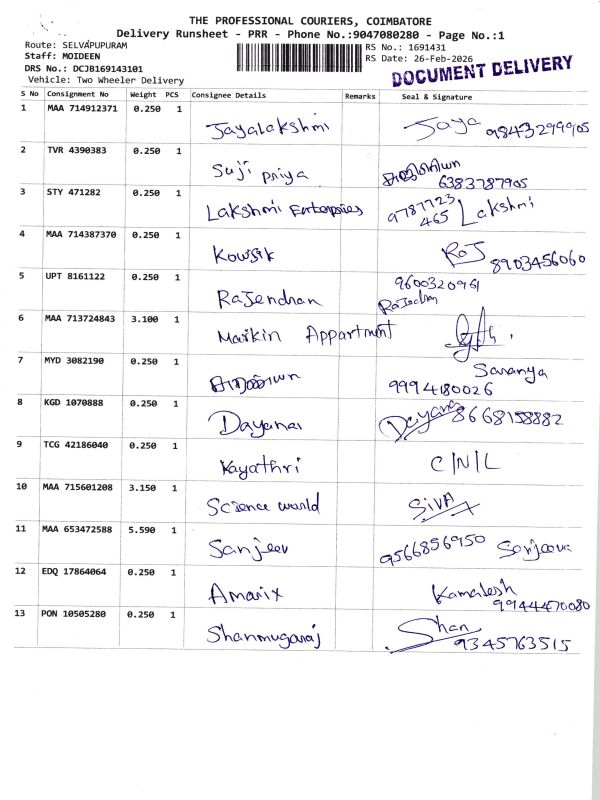 THE PROFESSIONAL COURIERS, COIMBATORE
Delivery Runsheet - PRR - Phone No.:9047080280 - Page No.:1
Route: SELVAPUPURAM
Staff: MOIDEEN
DRS No.: DCJB169143101
Vehicle: Two Wheeler Delivery
RS No.: 1691431
RS Date: 26-Feb-2026
DOCUMENT DELIVERY
S No Consignment No Weight PCS Consignee Details Remarks Seal & Signature
1 MAA 714912371 0.250 1 Jayalakshmi Jaya 9843299905
2 TVR 4390383 0.250 1 Suji priya
6383787905
3 STY 471282 0.250 1 Lakshmi Enterprises 9787723
465 Lakshmi
4 MAA 714387370 0.250 1 Kowsik Raj 8903456060
5 UPT 8161122 0.250 1 Rajendran 9600320961
Rajedran
6 MAA 713724843 3.100 1 Markin Appartment
7 MYD 3082190 0.250 1 Saranya
9994180026
8 KGD 1070888 0.250 1 Dayanai Dayana 8668158882
9 TCG 42186040 0.250 1 Kayathri C/N/L
10 MAA 715601208 3.150 1 Science world SIVA
11 MAA 653472588 5.590 1 Sanjeev 9566856950
12 EDQ 17864064 0.250 1 Amarix Kamalesh
9944470080
13 PON 10505280 0.250 1 Shanmugaraj Shan
9345763515